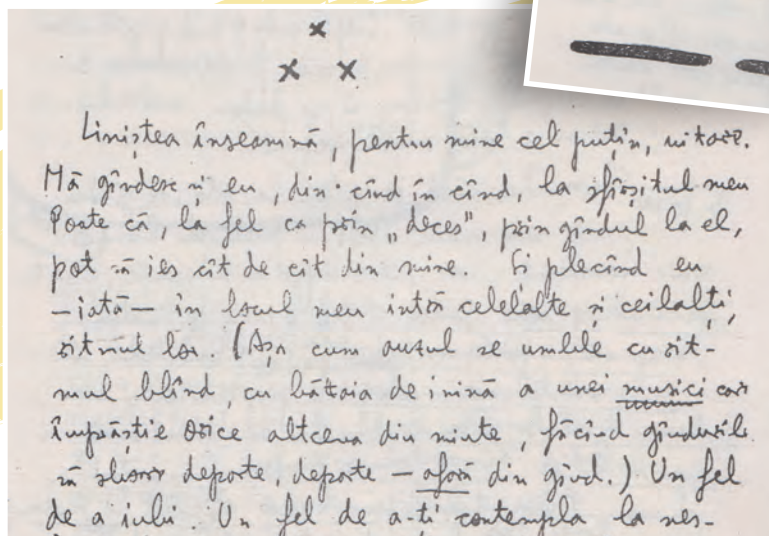 x
x x
Liniștea înseamnă, pentru mine cel puțin, uitare.
Mă gîndesc și eu, din cînd în cînd, la sfîrșitul meu
Poate că, la fel ca prin „deces”, prin gîndul la el,
pot să ies cît de cît din mine. Și plecînd eu
— iată — în locul meu intră celelalte și ceilalți,
ritmul lor. (Așa cum auzul se umple cu rit-
mul blînd, cu bătaia de inimă a unei muzici care
împrăștie orice altceva din minte, făcînd gîndurile
să zboare departe, departe — afară din gînd.) Un fel
de a iubi. Un fel de a-ți contempla la nes-